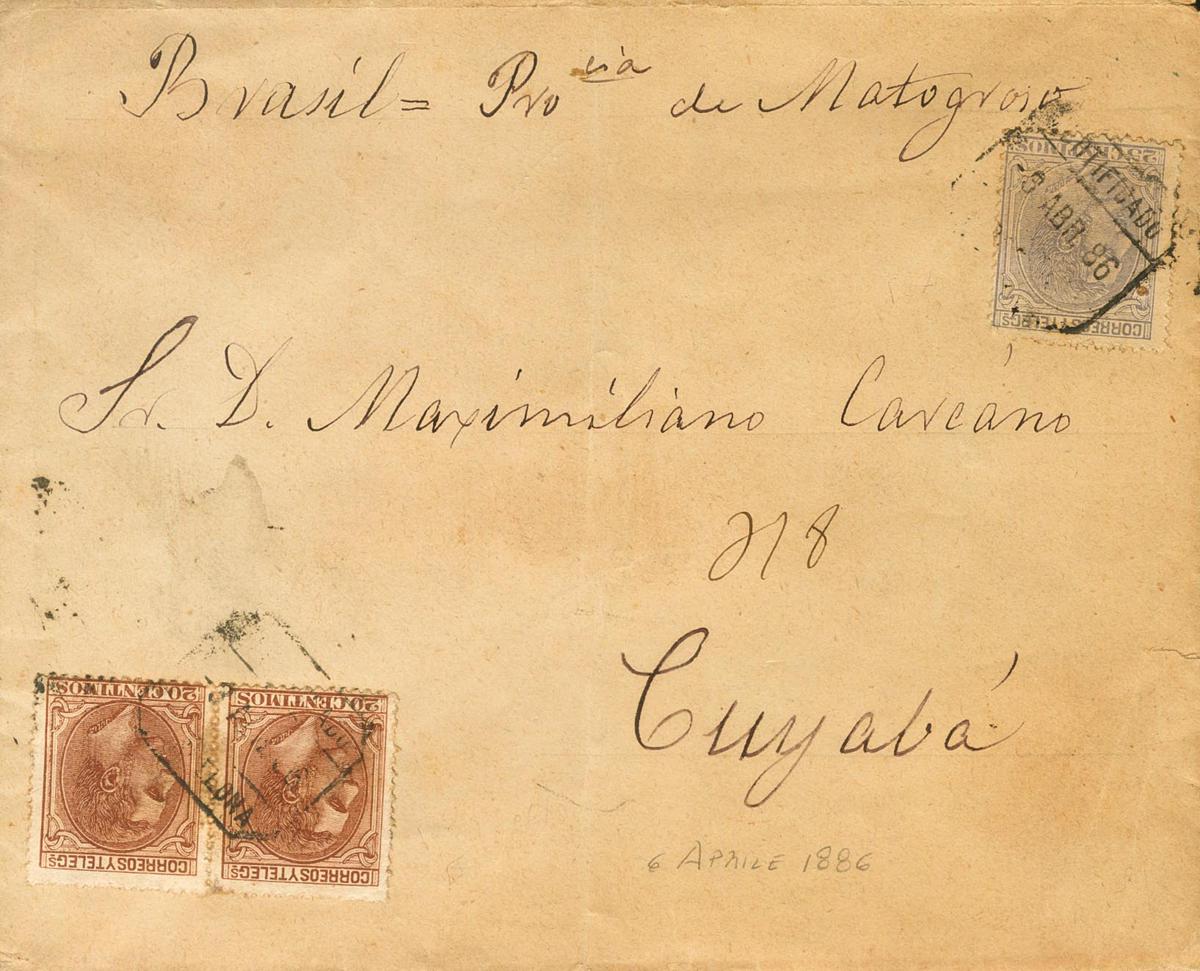 Brasil = Pro cia de Matogroso
25 CENTIMOS
CERTIFICADO
6 ABR. 86
CORREOS Y TELEGS
Sr. D. Maximiliano Carcáno
Cuyabá
20 CENTIMOS
20 CENTIMOS
CORREOS Y TELEGS
CORREOS Y TELEGS
6 APRILE 1886